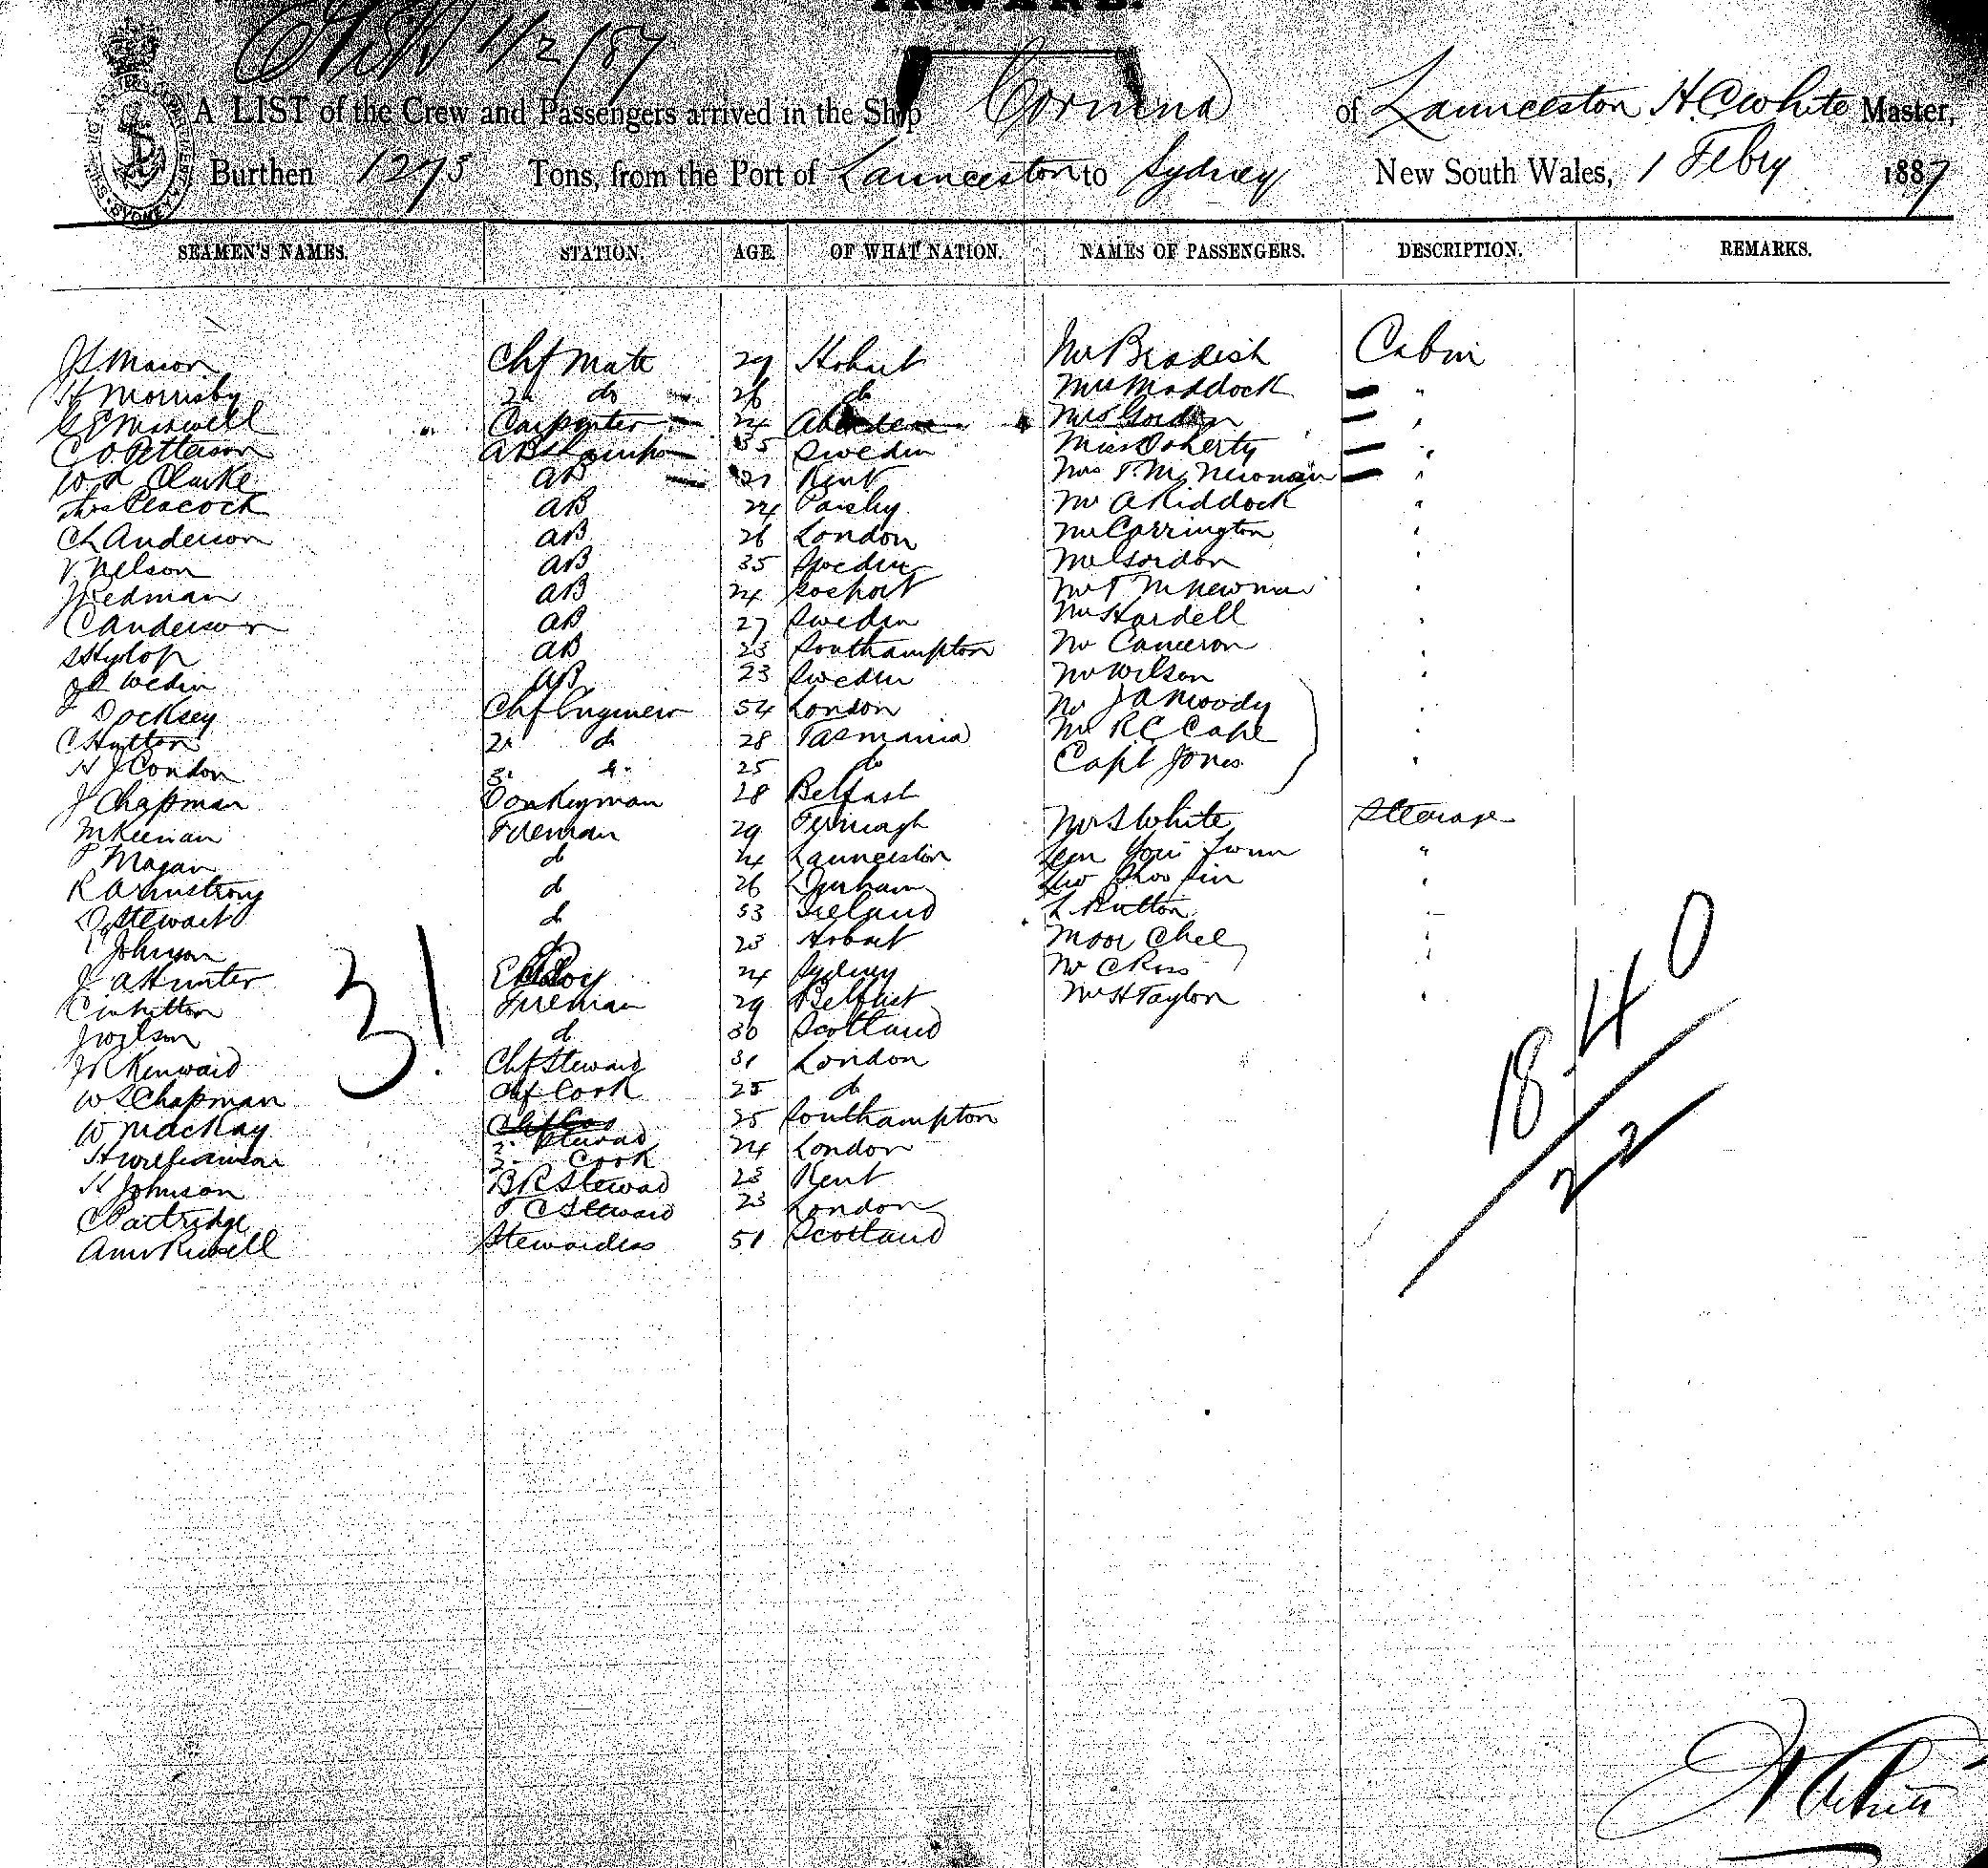 INWARD.
1/2/87
A LIST of the Crew and Passengers arrived in the Ship Corinna of Launceston H.C. White Master,
Burthen 1273 Tons, from the Port of Launceston to Sydney New South Wales, 1 Febry 1887
SEAMEN'S NAMES. STATION. AGE. OF WHAT NATION. NAMES OF PASSENGERS. DESCRIPTION. REMARKS.
JS Mason Chf Mate 29 Hobart Mr Bradish Cabin
H Mornisby 2n do 26 do Mrs Maddock "
G E Maxwell Carpenter 24 Mrs Gordon "
C O Petterson AB & Lamps 35 Sweden Miss Doherty "
W A Clarke AB 21 Kent Mrs T. M. Newman "
Thos Peacock AB 24 Paisley Mr A Riddock "
Ch Anderson AB 26 London Mr Carrington "
V Nelson AB 35 Sweden Mr Gordon "
J Redman AB 24 Gosport Mr T M Newman "
C Anderson AB 27 Sweden Mr Hardell "
S Hyslop AB 23 Southampton Mr Cameron "
Wedin AB 23 Sweden Mr Wilson "
J Docksey Chf Engineer 54 London Mr J A Moody "
C Hutton 2n do 28 Tasmania Mr R C Cape "
H J Condon 3. do 25 do Capt Jones "
J Chapman Donkeyman 28 Belfast
M Keenan Fireman 29 Mr S White Steerage
P Magan do 24 Launceston "
R Armstrong do 26 Durham "
D Stewart do 53 Ireland L Button "
Johnson do 23 Hobart Moor Chee "
J A Hunter 24 Sydney Mr C Ross "
C Whitton Fireman 29 Belfast Mr H Taylor "
J Wilson do 30 Scotland
J R Kenward Chf Steward 31 London
W S Chapman Chf Cook 25 do
W MacKay 2. Steward 25 Southampton
H Williamson 2. Cook 24 London
H Johnson B R Steward 23 Kent
C Partridge F C Steward 23 London
Ann Russell Stewardess 51 Scotland
31
18.40
22